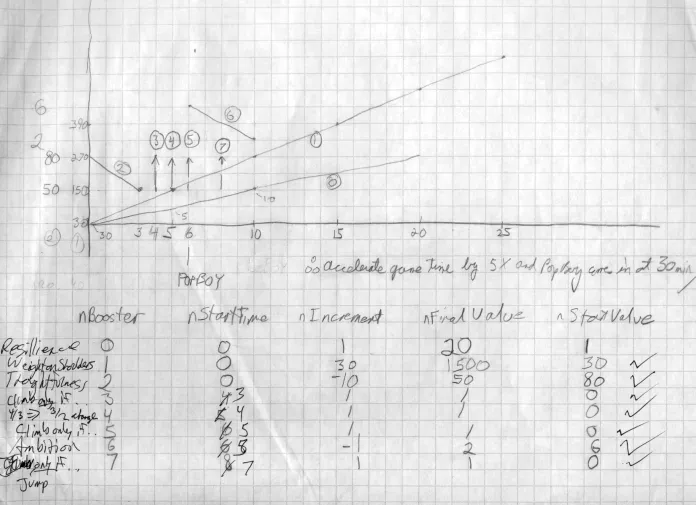 6
390
⑥
2
③ ④ ⑤ ⑦ ①
80 270
②
50 150
⓪
5
10
30
② ①
30 3 4 5 6 10 15 20 25 30
POPBOY
∴ accelerate game time by 5X and PopBoy comes in at 30 min
nBooster nStartTime nIncrement nFinalValue nStartValue
Resillience 0 0 1 20 1
Weight on Shoulders 1 0 30 1500 30 ✓
Thoughtfulness 2 0 -10 50 80 ✓
Climb only if.. 3 3 1 1 0 ✓
4/3 => 3/2 change 4 4 1 1 0 ✓
Climb only if.. 5 5 1 1 0 ✓
Ambition 6 8 -1 2 6 ✓
only if.. 7 7 1 1 0 ✓
Jump